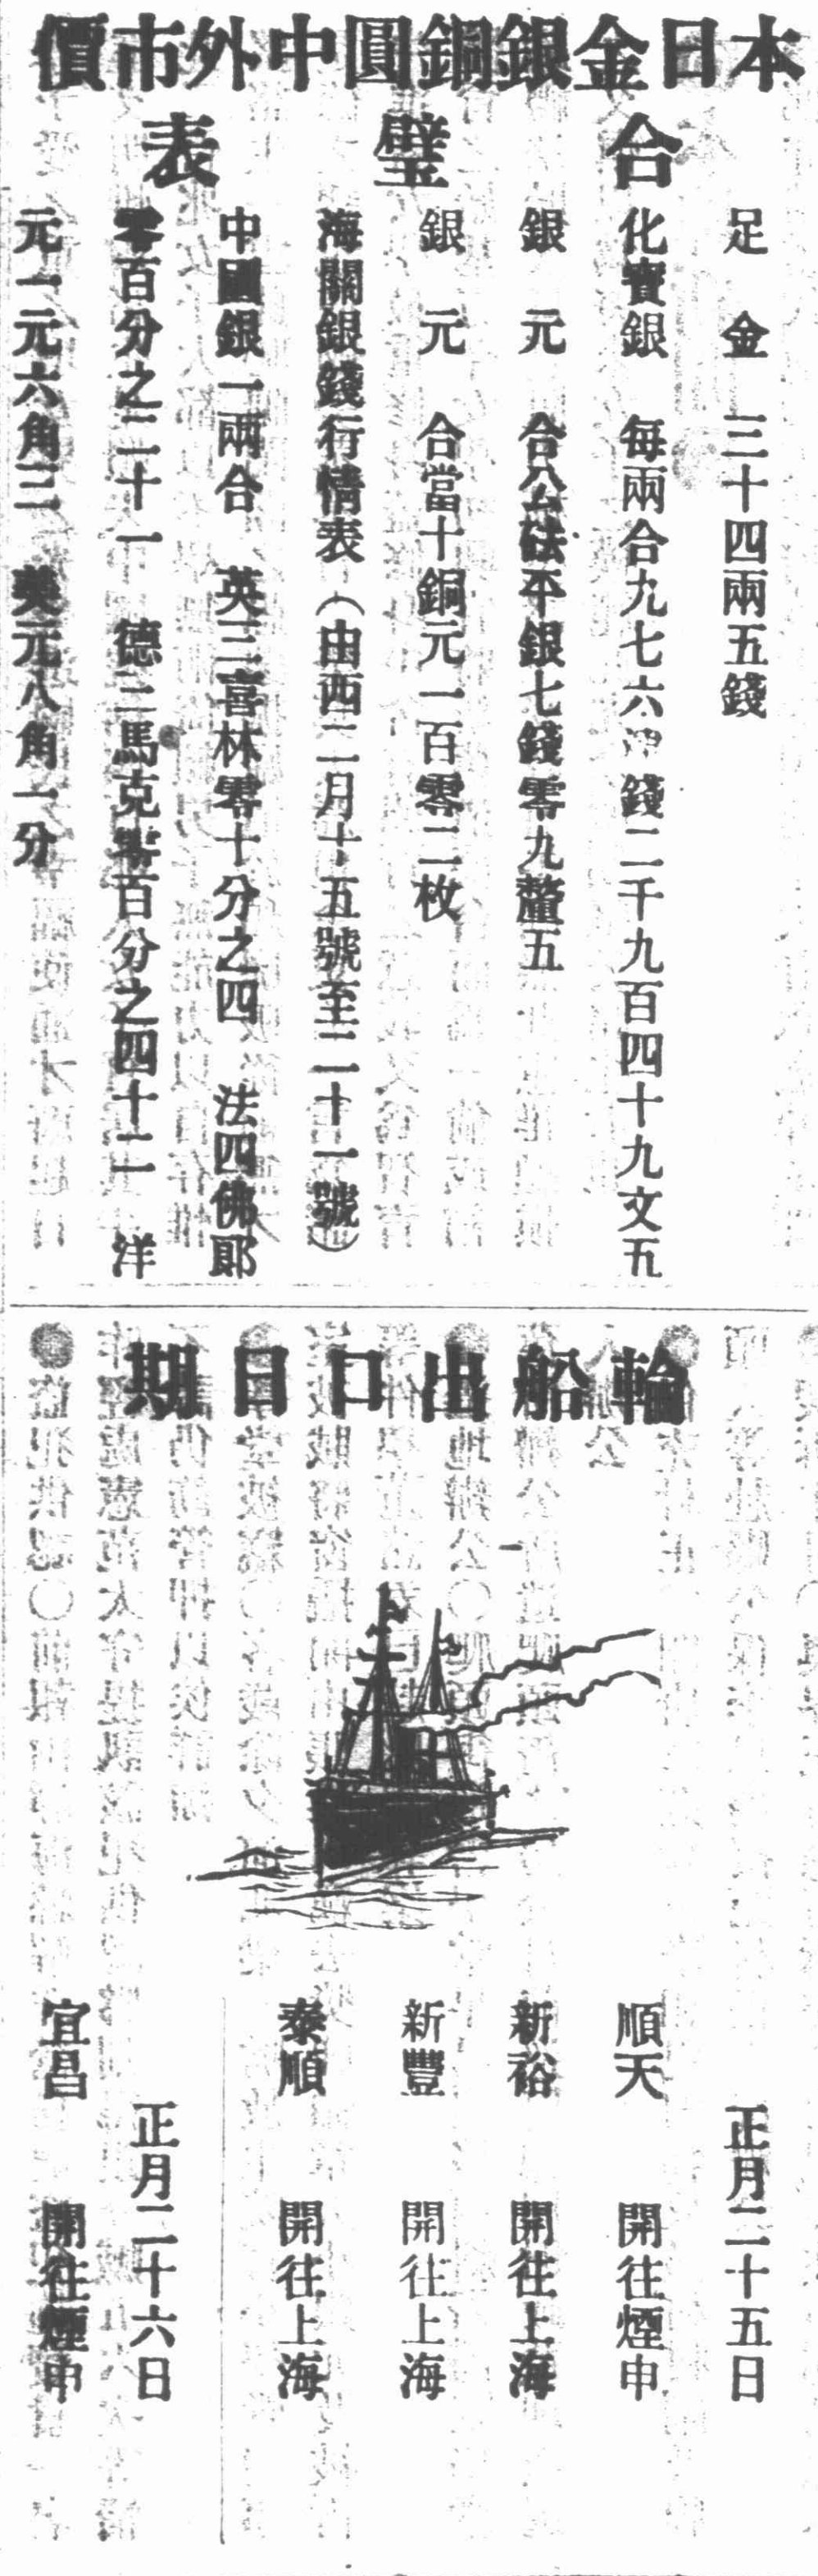 本日金銀銅圓中外市價
合璧表
足金 三十四兩五錢
化寶銀 每兩合九七六 錢二千九百四十九文五
銀元 合公砝平銀七錢零九釐五
銀元 合當十銅元一百零二枚
海關銀錢行情表(由西二月十五號至二十一號)
中國銀一兩合 英三喜林零十分之四 法四佛郎
零百分之二十一 德三馬克零百分之四十二 洋
元一元六角二 美元八角一分
輪船出口日期
正月二十五日
順天 開往煙申
新裕 開往上海
新豐 開往上海
泰順 開往上海
正月二十六日
宜昌 開往煙申